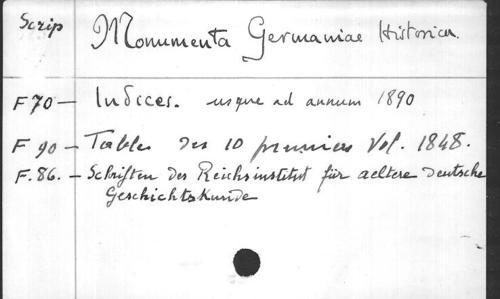 Scrip
Monumenta Germaniae Historica.
F 70 — Indices. usque ad annum 1890
F 90 — Tables des 10 premiers Vol. 1848.
F. 86. — Schriften des Reichsinstitut für aeltere deutsche
Geschichtskunde